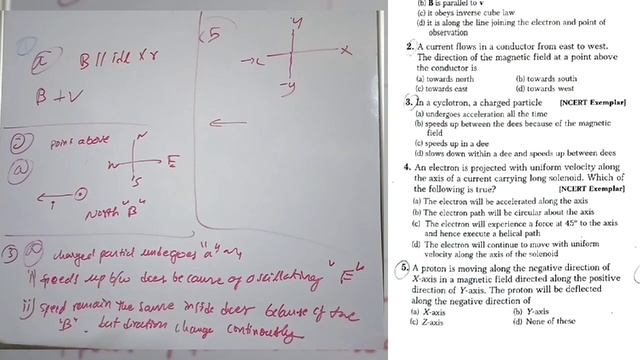 1
a B || idl x r
B ⊥ V
2 point above
a
N
W E
S
I
North "B"
3 a charged partical undergoes "a"
i) speeds up b/w dees because of oscillating "E"
ii) speed remain the same inside dees because of the
"B". but direction change continously
5
y
-x x
-y
(b) B is parallel to v
(c) it obeys inverse cube law
(d) it is along the line joining the electron and point of
observation
2. A current flows in a conductor from east to west.
The direction of the magnetic field at a point above
the conductor is
(a) towards north (b) towards south
(c) towards east (d) towards west
3. In a cyclotron, a charged particle [NCERT Exemplar]
(a) undergoes acceleration all the time
(b) speeds up between the dees because of the magnetic
field
(c) speeds up in a dee
(d) slows down within a dee and speeds up between dees
4. An electron is projected with uniform velocity along
the axis of a current carrying long solenoid. Which of
the following is true? [NCERT Exemplar]
(a) The electron will be accelerated along the axis
(b) The electron path will be circular about the axis
(c) The electron will experience a force at 45° to the axis
and hence execute a helical path
(d) The electron will continue to move with uniform
velocity along the axis of the solenoid
5. A proton is moving along the negative direction of
X-axis in a magnetic field directed along the positive
direction of Y-axis. The proton will be deflected
along the negative direction of
(a) X-axis (b) Y-axis
(c) Z-axis (d) None of these